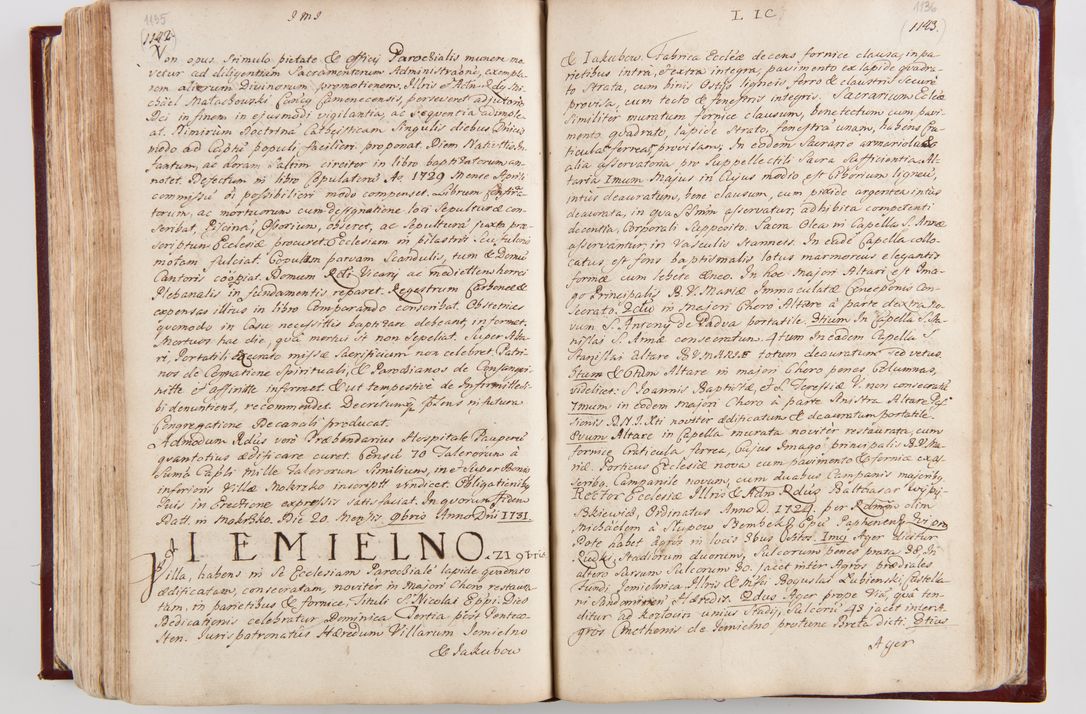 1135
1142.
I M I
Von opus stimulo pietate & officij Parochialis munere mo
vetur ad diligentiam Sacramentorum Administraone, exempla
rem aliorum Divinorum promotionem. Illris & Adm Rdg Mi
chäel Mataskowski Camenecensis, perseveret adjutorio
Dei in finem in ejusmodi vigilantia, ac sequentia adimple
at. Nimirum Doctrina Cathesticam Singulis diebus Dnicis
modo ad Captu populi faciliori proponat. Diem Nativitis In
fantum, ac horam saltim circiter in libro baptizatorum an
notet. Defectum in libro Copulatorū Ao 1729 Mense Aprili
commissū ōi possibiliori modo compenset. Librum
torum, ac mortuorum cum designatione loci Sepulturæ con
scribat, Piscina, Ostorium, obseret, ac Sepultura juxta præ
scriptum Ecclesiæ procuret. Ecclesiam in pilastris seu
motam fulciat. Copulam parvam Scandulis, tum & Domū
Cantoris coöpiat. Domum Rdi Vicarij ac medietem horrei
Plebanalis in fundamentis reparet. Regestrum &
expensas illius in libro Comparando conscribat. Obstetrices
quomodo in Casu necessitis baptizare debeant informet.
Mortuos hac die, quā mortui st non sepeliat. Super Alta
ri Portabili Execrato missæ Sacrificium non celebret. Patri
nos de Cognatione Spirituali, & Parochianos de Consangui
nitte & affinitte informet, & ut tempestive de Infirmis
bi denuntient, recommendet. Decretum ipsens in futura
Congregatione Decanali producat.
Admodum Rdus vero Præbendarius Hospitale Pauperū
quantotius ædificare curet. Censū 70 Talerorum à
Summa Capli Mille Talerorum Similium, in & super Bonis
inferioris Villæ Mokrzko inscriptt vindicet. Obligationibg
Suis in Erectione expressis satisfaciat. In quorum fidem
Datt. in Mokrzko. Die 20. Mensis 9bris Anno Dni 1731.
IEMIELNO. Z1 9bris
Villa, habens in se Ecclesiam Parochiale lapide quadrato
ædificatam, consecratam, noviter in Majori Choro restaura
tam, in parietibus & fornice, Tituli S. Nicolai Eppi. Dies
Dedicationis celebratur Dominica Tertia post Penteco
sten. Juris patronatūs Hæredum Villarum Jemielno
& Jakubow
L I C
1136
1143.
& Iakubow. Fabrica Eccliæ decens fornice clausa, in pa
rietibus intra, & extra integra, pavimento ex lapide quadra
to Strata, cum binis Ostijs ligneis ferro & claustris securè
provisa, cum tecto & fenestris integris. Sacrarium Eccliæ
Similiter muratum fornice clausum, benetectum cum pavi
mento quadrato, lapide Strato, fenestrā unam, habens cra
ticulā ferreā provisam, In eodem Sacrario armeriolū &
alia asservatoria pro Suppellectili Sacra Sufficientia. Al
taria Imum Majus in Cujus medio est Ciborium ligneū,
intùs deauratum, bene clausum, cum pixide argentea intùs
deaurata, in qua Ssmm asservatur, adhibita competenti
decentia, Corporali Supposito. Sacra Olea in Capella S. Annæ
asservantur, in Vasculis Stanneis. In eadē Capella collo
catus est fons baptismalis totus marmoreus elegantis
formæ cum lebete Æneo. In hoc Majori Altari est Ima
go Principalis B. V. Mariæ Immaculatæ Conceptionis Con
secrato. 2dū in Majori Choro Altare à parte dextra No
vum S. Antonij de Padva portatile. 3tium In Capella S. Sta
nislai S. Annæ consecratum. 4tum In eadem Capella S.
Stanislai altare B.V. MARIÆ totum deauratum sed vetus.
5tum & 6tum Altare in majori Choro penes Columnas,
videlicet S. Ioannis Baptistæ, & S. Teressiæ V. non consecratæ
7mum in eodem Majori Choro à parte sinistra Altare Pas
sionis D. N. J. Xti noviter ædificatum & deauratum portatile.
8vum Altare in Capella murata noviter restaurata, cum
fornice Craticula ferrea, Cujus Imago principalis B. V. Ma
riæ. Porticus Ecclesiæ nova cum pavimento & fornice
Campanile novum, cum duabus Campanis majoribg.
Rector Ecclesiæ Illris & Adm Rdus Balthasar Wyspi
Szkiewicz, Ordinatus Anno D. 1724. per Rdmm olim
Michaëlem à Stupow Szembek Epū Paphenem
Dote habet Agros in locis 3bus Ostros. Img Ager dicitur
Rudki, Stadiorum duorum, Sulcorum penes prata 38. In
altero Sarsum Sulcorum 30. Jacet inter Agros prædiales
Fundi Jemielnica Illris & Mfci Boguslai Łubienski, Castella
ni Sandomirien Hæredis. 2dus Ager prope Viā, quā ten
ditur ad Kozlow unius Stadij, Sulcorū 43 jacet inter A
gros Cmethonis de Jemielno protunc Breta dicti. 3tius
Ager